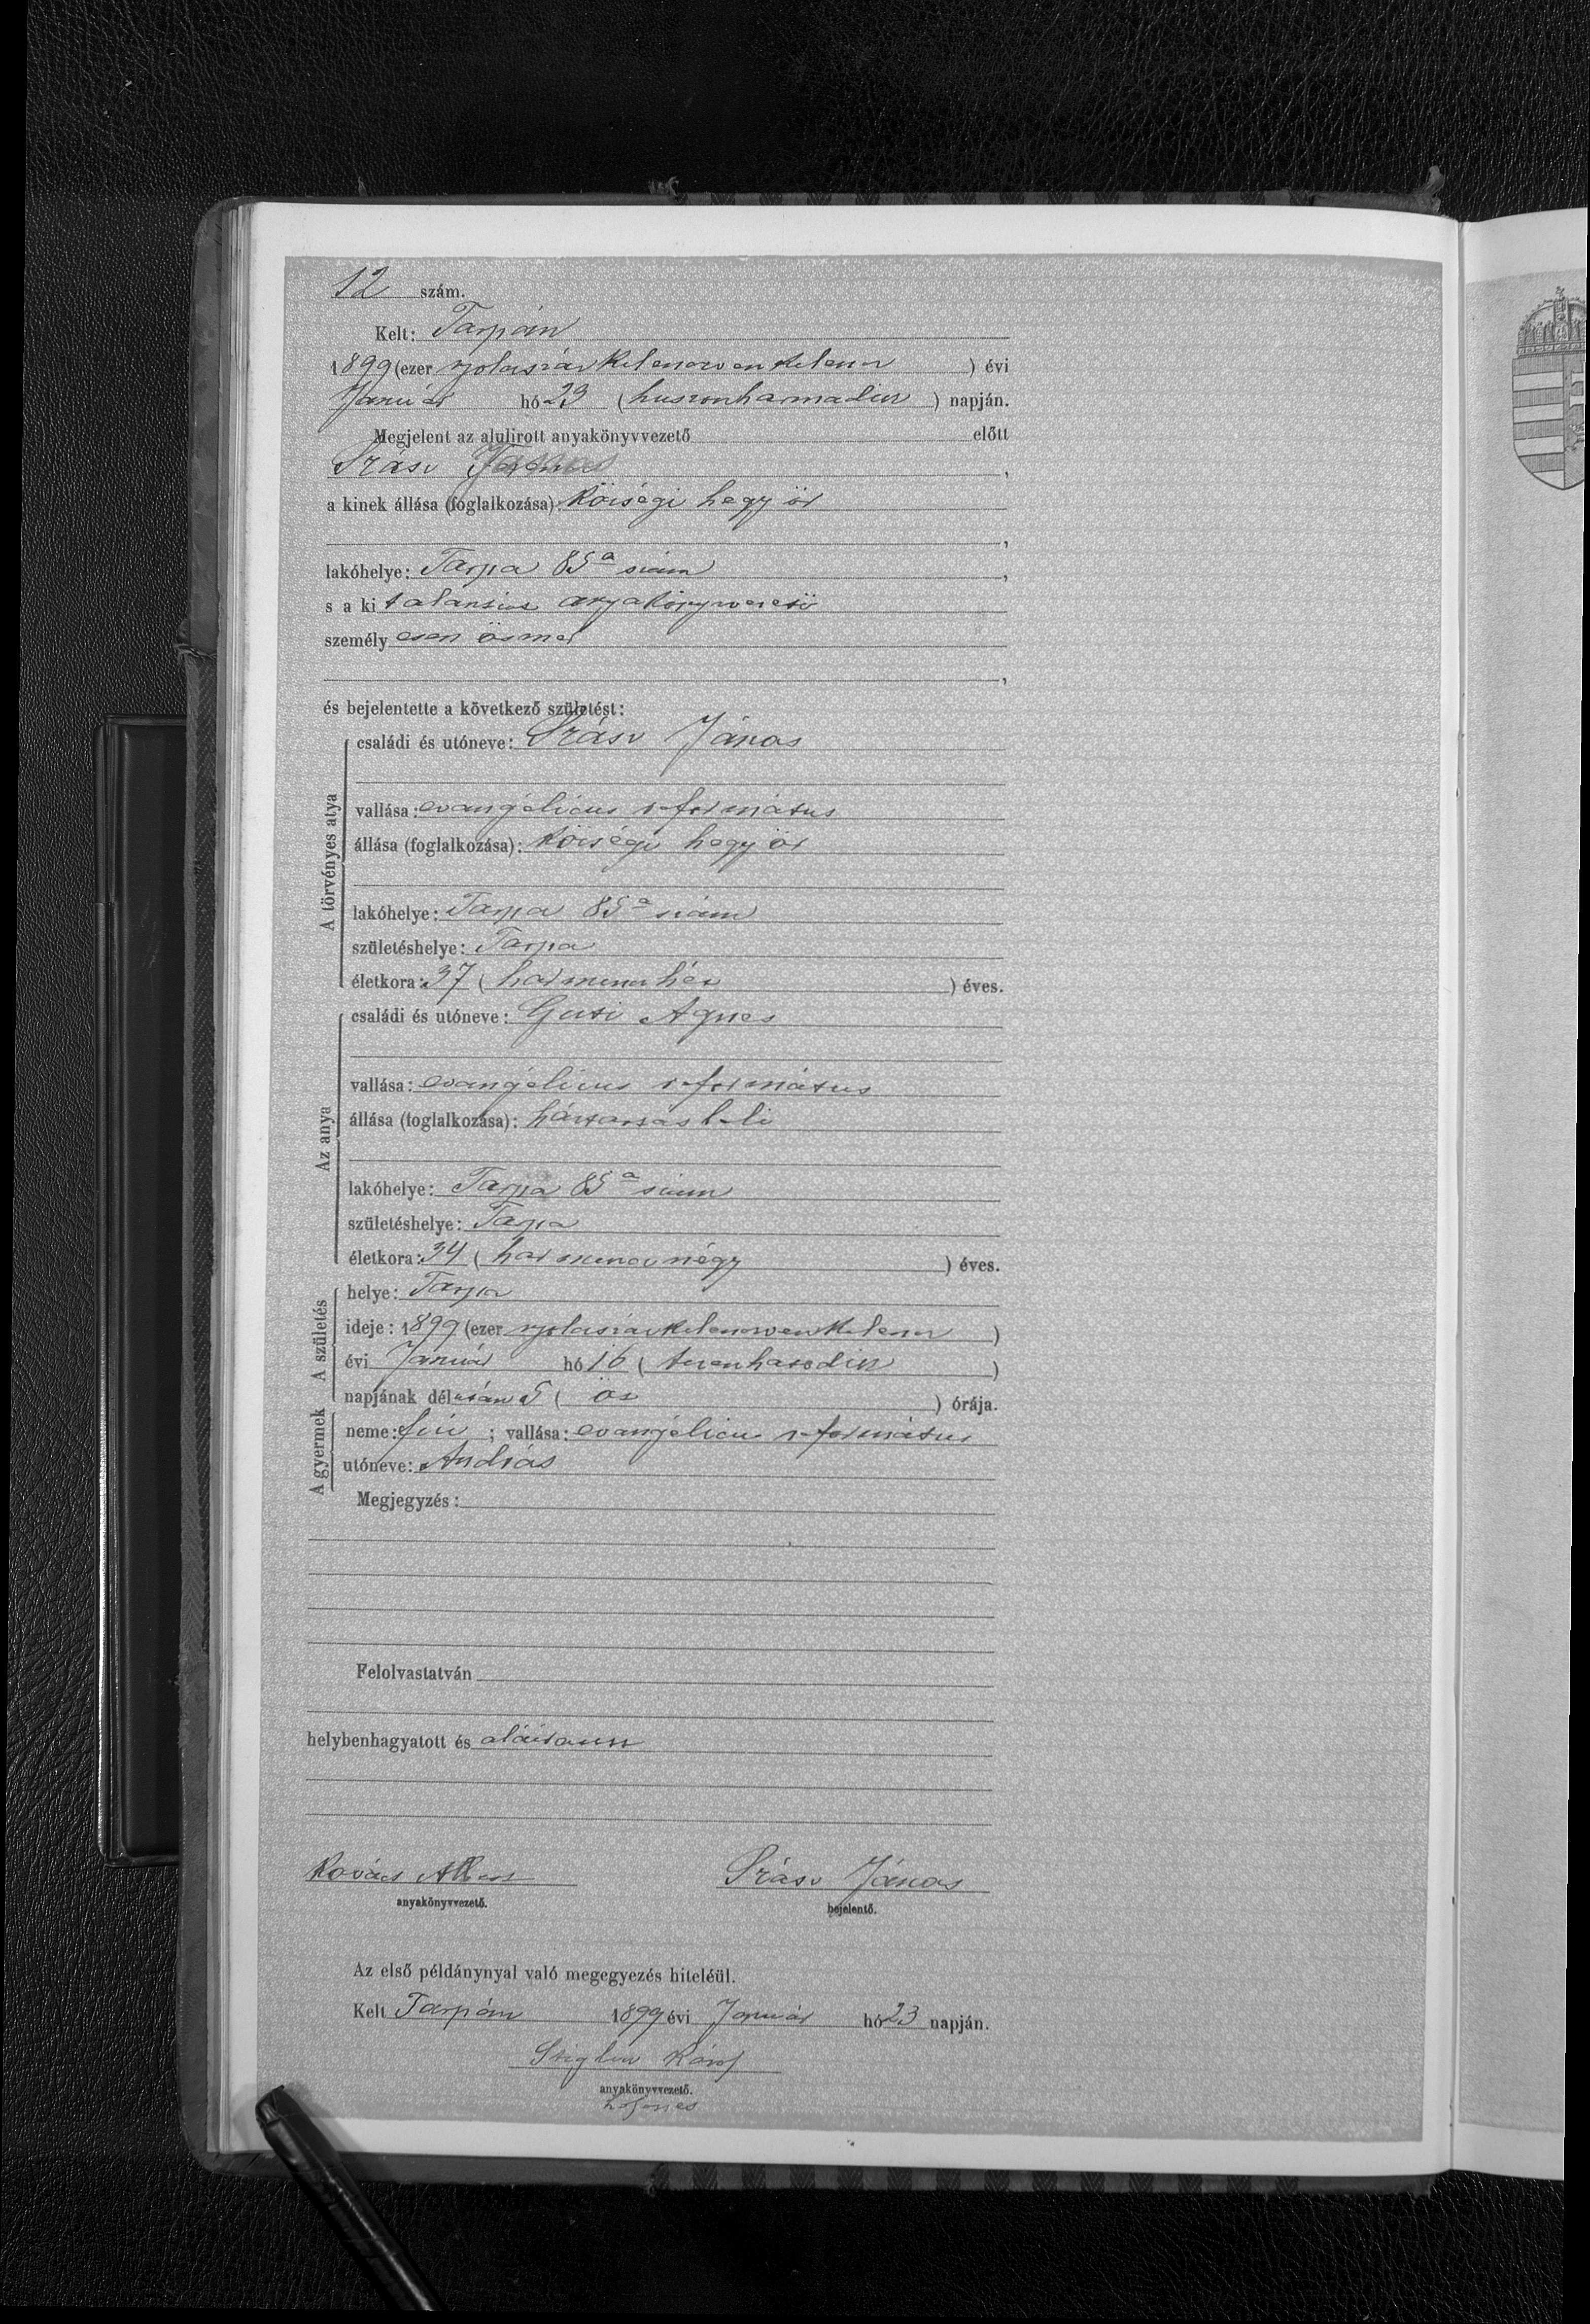 12 szám.
Kelt: Tarpán
1899 (ezer nyolcszázkilencvenkilenc) évi
Január hó 23 (huszonharmadik) napján.
Megjelent az alulirott anyakönyvvezető előtt
Szász János,
a kinek állása (foglalkozása): községi hegy őr
,
lakóhelye: Tarpa 85a szám,
s a kit alantirt anyakönyvvezető
személyesen ösmer
,
és bejelentette a következő születést:
A törvényes atya
családi és utóneve: Szász János
vallása: evangélicus református
állása (foglalkozása): községi hegy őr
lakóhelye: Tarpa 85a szám
születéshelye: Tarpa
életkora: 37 (harminczhét) éves.
Az anya
családi és utóneve: Guti Ágnes
vallása: evangélicus református
állása (foglalkozása): háztartásbeli
lakóhelye: Tarpa 85a szám
születéshelye: Tarpa
életkora: 34 (harmincznégy) éves.
A születés
helye: Tarpa
ideje: 1899 (ezer nyolcszázkilencvenkilenc)
évi Január hó 16 (tizenhatodik)
napjának délután 5 (öt) órája.
A gyermek
neme: fiú; vallása: evangélicus református
utóneve: András
Megjegyzés:
Felolvastatván
helybenhagyatott és aláiratott
Kovács Albert
anyakönyvvezető.
Szász János
bejelentő.
Az első példánynyal való megegyezés hiteléül.
Kelt Tarpán 1899 évi Január hó 23 napján.
Károly
anyakönyvvezető.